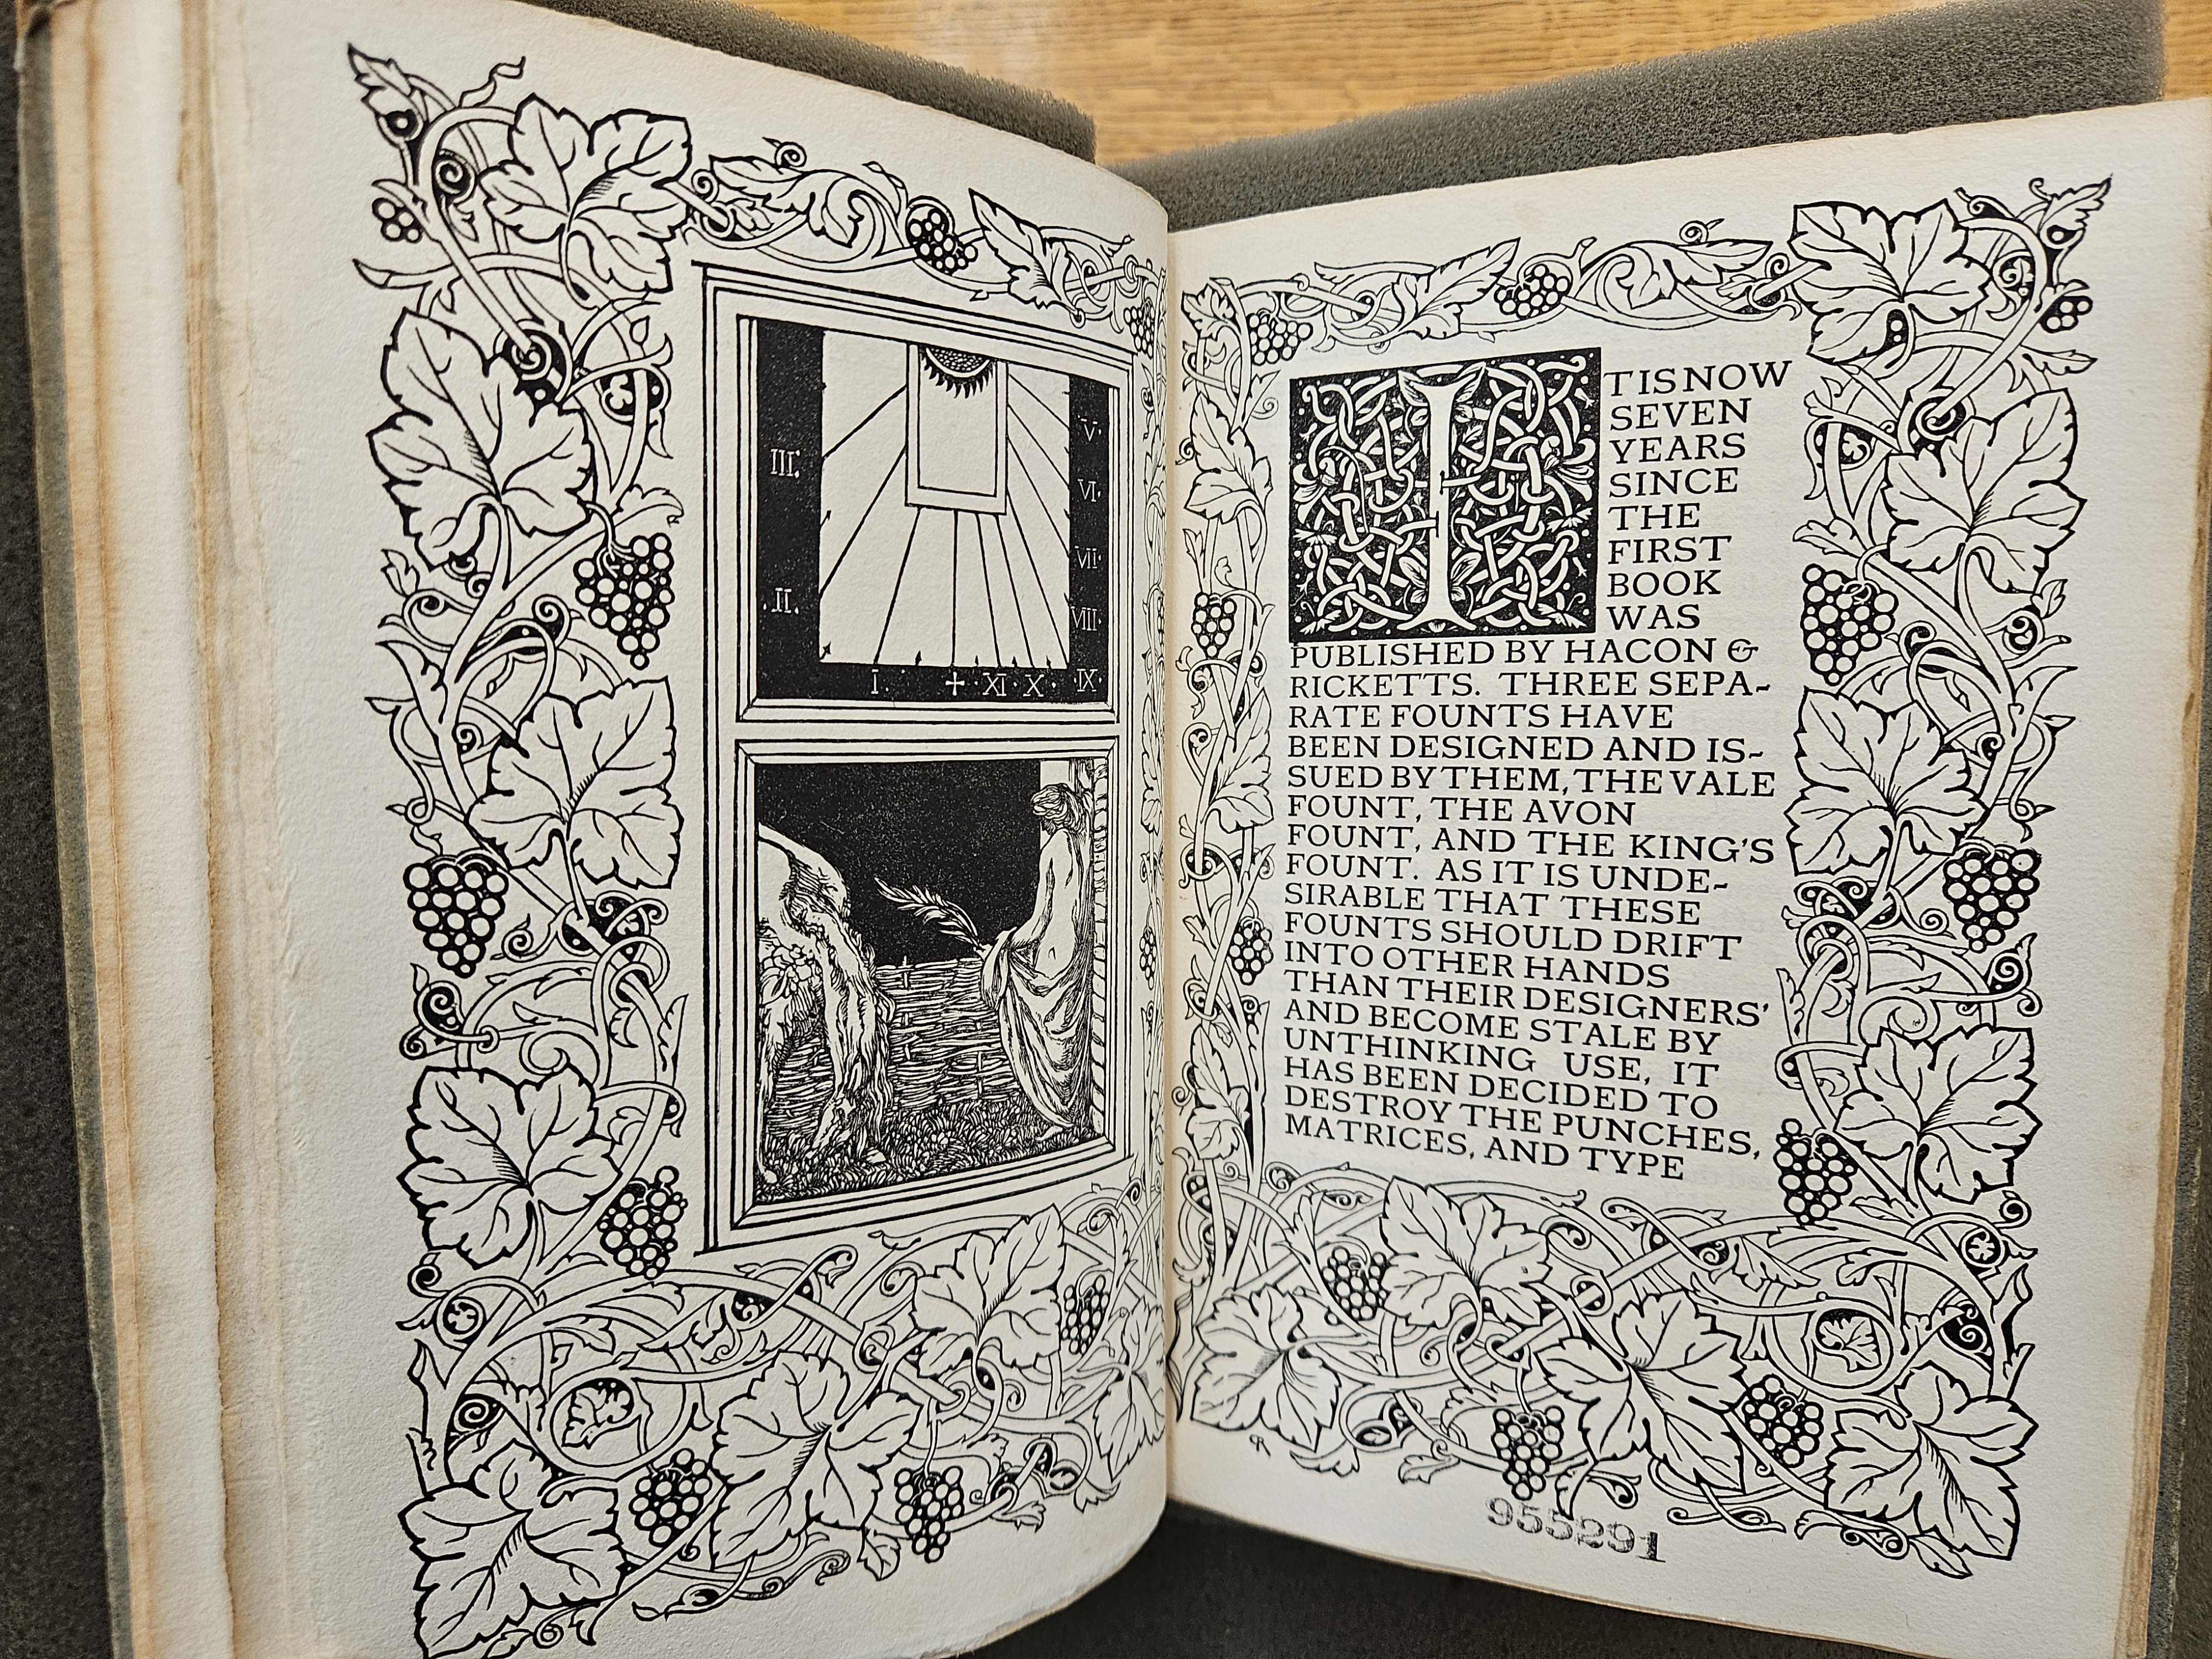 V·
III·
VI·
VII·
·II·
VIII·
I· + ·XI· X· ·IX·
IT IS NOW
SEVEN
YEARS
SINCE
THE
FIRST
BOOK
WAS
PUBLISHED BY HACON &
RICKETTS. THREE SEPA-
RATE FOUNTS HAVE
BEEN DESIGNED AND IS-
SUED BY THEM, THE VALE
FOUNT, THE AVON
FOUNT, AND THE KING'S
FOUNT. AS IT IS UNDE-
SIRABLE THAT THESE
FOUNTS SHOULD DRIFT
INTO OTHER HANDS
THAN THEIR DESIGNERS'
AND BECOME STALE BY
UNTHINKING USE, IT
HAS BEEN DECIDED TO
DESTROY THE PUNCHES,
MATRICES, AND TYPE
CR
955291